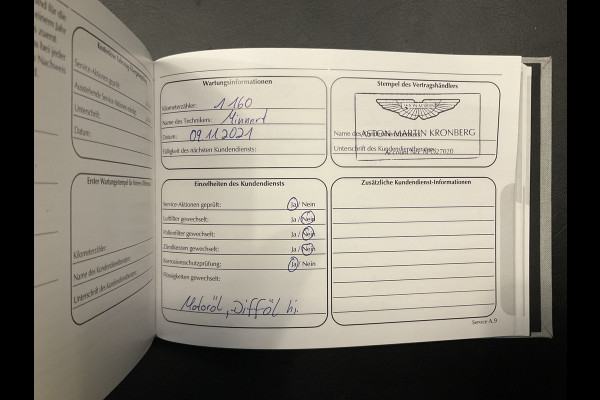 und für die
seinem Jahr
s zuerst
es bei jeder
Nachweis
Service-Aktionen geprüft:
Ausstehende Service-Aktionen
Unterschrift:
Datum:
Kilometerzähler:
Name des Kundendienstberaters:
Unterschrift des Kundendienstberaters:
Wartungsinformationen
Kilometerzähler: 1160
Name des Technikers: Minnert
Datum: 09.11.2021
Fälligkeit des nächsten Kundendiensts:
Stempel des Vertragshändlers
ASTON MARTIN
ASTON MARTIN KRONBERG
Name des
Unterschrift des Kundendienstberaters:
Einzelheiten des Kundendiensts
Service-Aktionen geprüft: Ja / Nein
Luftfilter gewechselt: Ja / Nein
Pollenfilter gewechselt: Ja / Nein
Zündkerzen gewechselt: Ja / Nein
Korrosionsschutzprüfung: Ja / Nein
Flüssigkeiten gewechselt:
Motoröl, Difföl hi.
Zusätzliche Kundendienst-Informationen
Service A.9